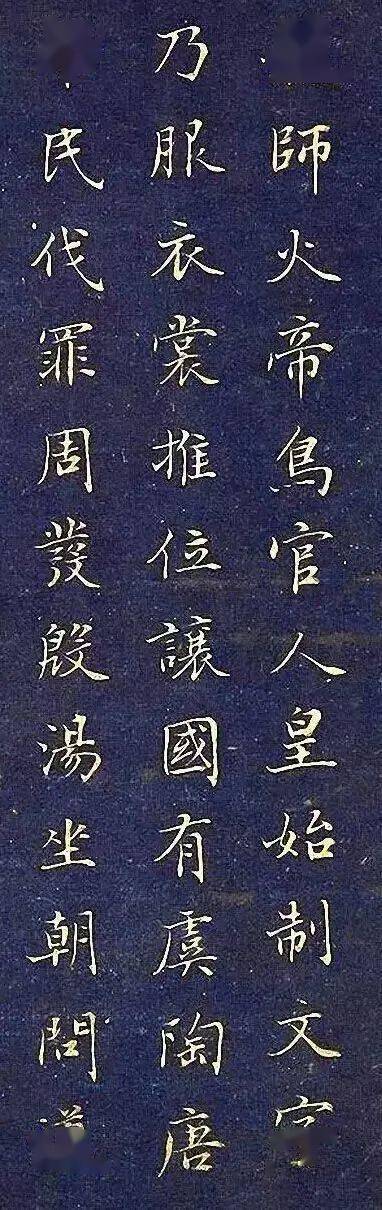 師火帝鳥官人皇始制文
乃服衣裳推位讓國有虞陶唐
民伐罪周發殷湯坐朝問